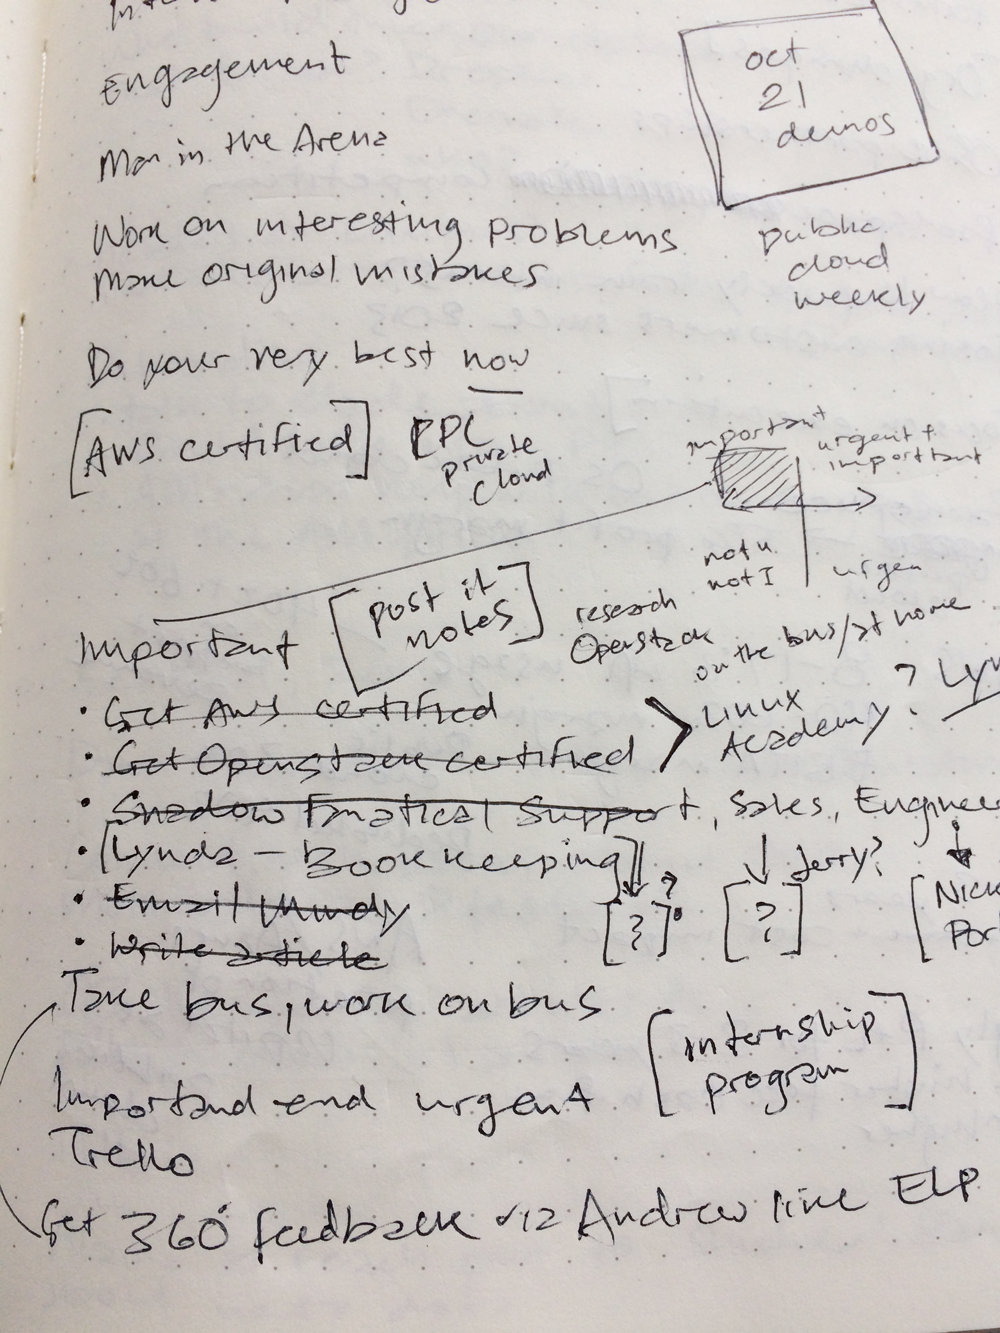 Engagement
oct
21
demos
Man in the Arena
Work on interesting problems
Make original mistakes
public
cloud
weekly
Do your very best now
[AWS certified]
RPC
private
cloud
important
urgent +
important
not u
not I
urgen
[post it
notes]
research
Openstack
on the bus/at home
Important
• Get AWS certified
• Get Openstack certified
> Linux
Academy?
? Lyn
• Shadow Fanatical Support, Sales, Enginee
• [Lynda - Bookkeeping]
Jerry?
• Email Mundy
[?]?
[?]
[Nick
Por
• Write article
Take bus, work on bus
[internship
program]
Important and urgent
Trello
Get 360° feedback via Andrew like ELP